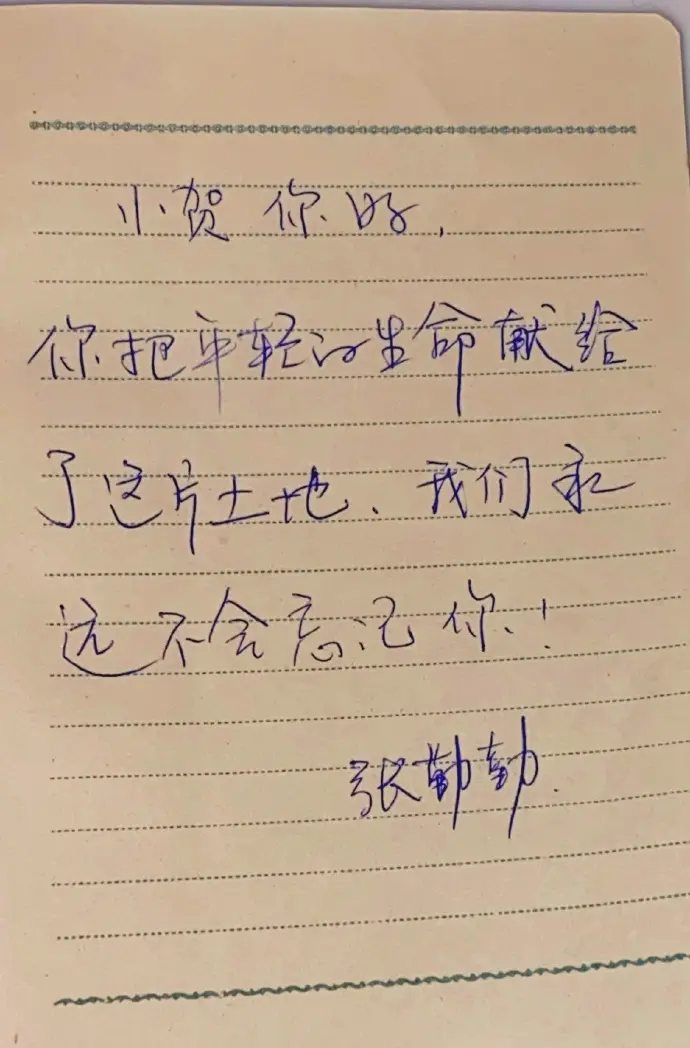 小贺你好,
你把年轻的生命献给
了这片土地、我们永
远不会忘记你!
张勤勤.